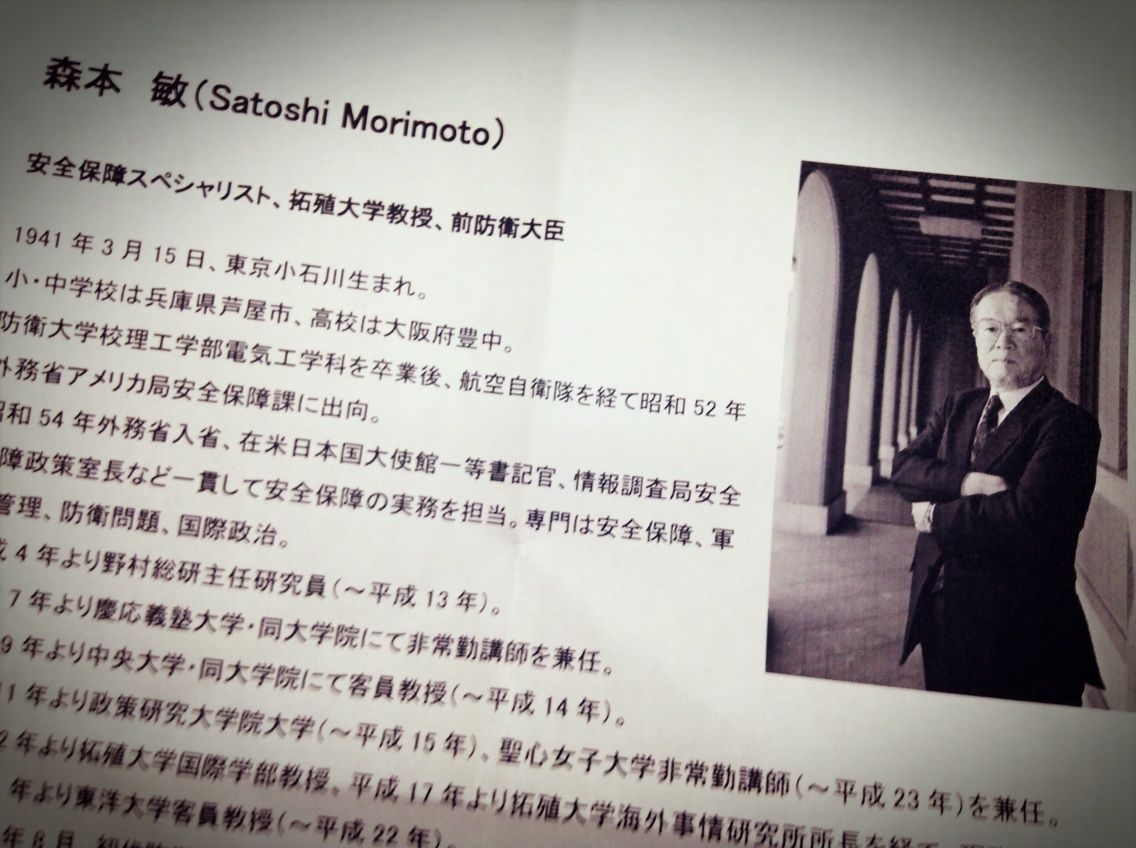 森本 敏(Satoshi Morimoto)
安全保障スペシャリスト、拓殖大学教授、前防衛大臣
1941年3月15日、東京小石川生まれ。
小・中学校は兵庫県芦屋市、高校は大阪府豊中。
防衛大学校理工学部電気工学科を卒業後、航空自衛隊を経て昭和52年
外務省アメリカ局安全保障課に出向。
昭和54年外務省入省、在米日本国大使館一等書記官、情報調査局安全
障政策室長など一貫して安全保障の実務を担当。専門は安全保障、軍
管理、防衛問題、国際政治。
成4年より野村総研主任研究員(~平成13年)。
7年より慶応義塾大学・同大学院にて非常勤講師を兼任。
9年より中央大学・同大学院にて客員教授(~平成14年)。
11年より政策研究大学院大学(~平成15年)、聖心女子大学非常勤講師(~平成23年)を兼任。
2年より拓殖大学国際学部教授。平成17年より拓殖大学海外事情研究所所長を経て、
年より東洋大学客員教授(~平成22年)。
年8月